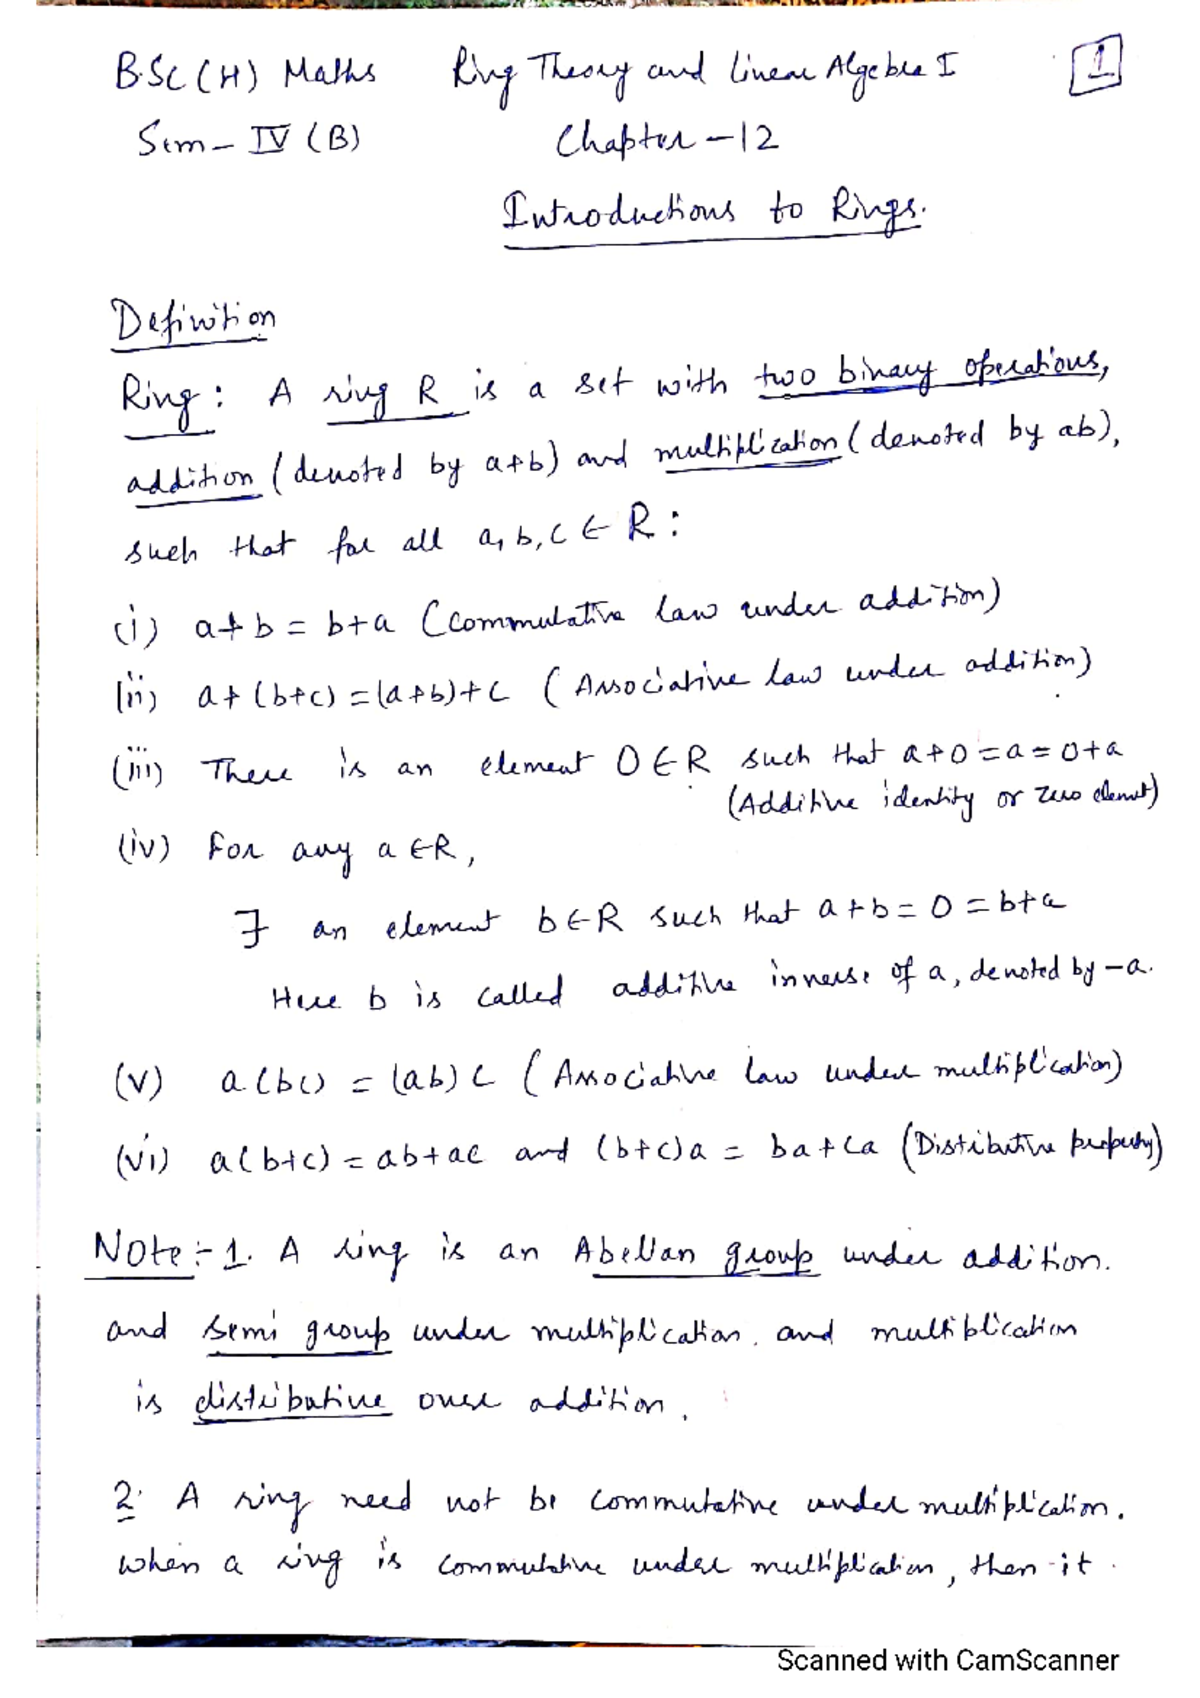 B.SC (H) Maths Ring Theory and Linear Algebra I 1
Sem- IV (B) Chapter -12
Introductions to Rings.
Definition
Ring: A ring R is a set with two binary operations,
addition (denoted by a+b) and multiplication (denoted by ab),
such that for all a, b, c ∈ R:
(i) a+b = b+a (Commutative law under addition)
(ii) a+(b+c) = (a+b)+c (Associative law under addition)
(iii) There is an element 0 ∈ R such that a+0 = a = 0+a
(Additive identity or zero element)
(iv) For any a ∈ R,
∃ an element b ∈ R such that a+b = 0 = b+a
Here b is called additive inverse of a, denoted by -a.
(v) a(bc) = (ab)c (Associative law under multiplication)
(vi) a(b+c) = ab+ac and (b+c)a = ba+ca (Distributive property)
Note:- 1. A ring is an Abelian group under addition.
and semi group under multiplication. and multiplication
is distributive over addition.
2. A ring need not be commutative under multiplication.
when a ring is commutative under multiplication, then it
Scanned with CamScanner